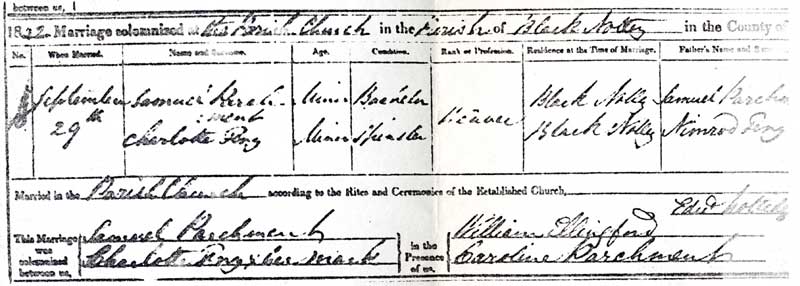 between us,
1872. Marriage solemnized at the Parish Church in the Parish of Black Notley in the County of
No. When Married. Name and Surname. Age. Condition. Rank or Profession. Residence at the Time of Marriage. Father's Name and
September Samuel Parch- Minor Bachelor Black Notley Samuel Parchm
29th ment
Charlotte Minor Spinster Black Notley Nimrod
Married in the Parish Church according to the Rites and Ceremonies of the Established Church,
This Marriage was solemnized between us, Samuel Parchment in the Presence of us, William Ellingford
Charlotte her mark Caroline Parchment